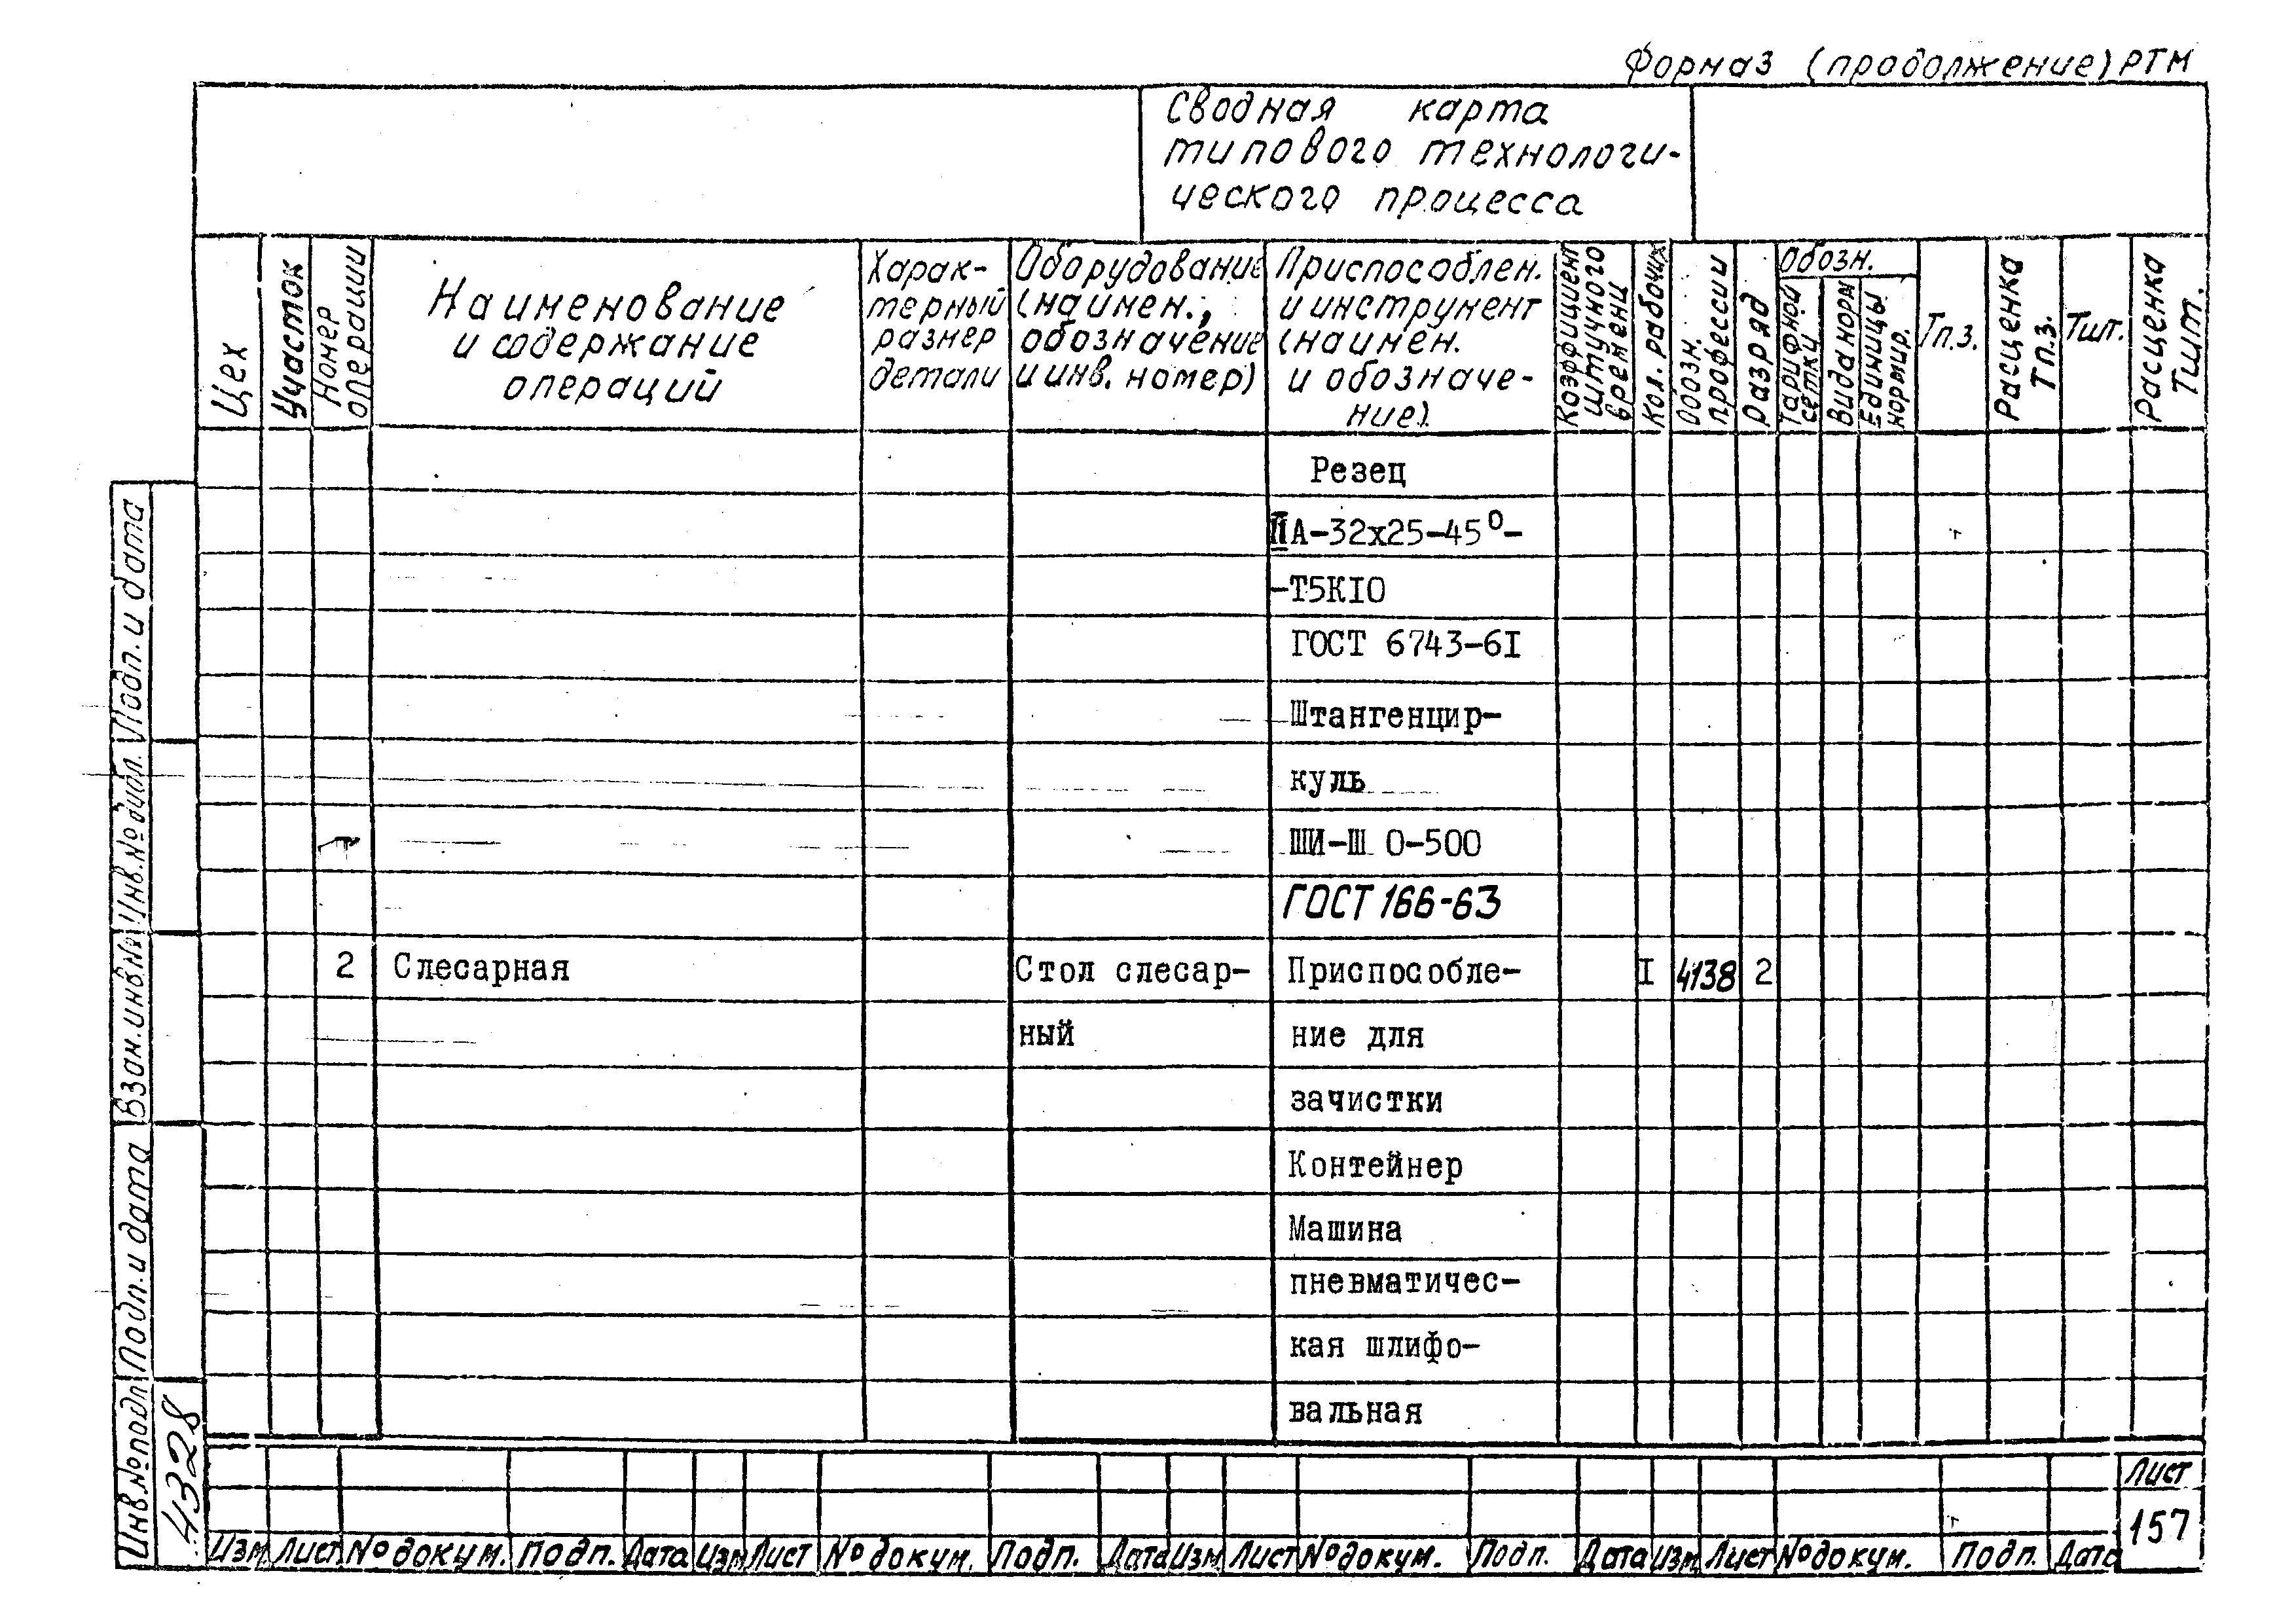 Форма 3 (продолжение) РТМ
Сводная карта
типового технологи-
ческого процесса
Цех
Участок
Номер
операции
Наименование
и содержание
операций
Харак-
терный
размер
детали
Оборудование
(наимен.,
обозначение
и инв. номер)
Приспособлен.
и инструмент
(наимен.
и обозначе-
ние).
Коэффициент
штучного
времени
Кол. рабочих
Обозн.
профессии
Разряд
Обозн.
Тарифной
сетки
Вида норм
Единицы
нормир.
Тп.з.
Расценка
Тп.з.
Тшт.
Расценка
Тшт.
Резец
IIА-32х25-45°-
-Т5К10
ГОСТ 6743-6I
Штангенцир-
куль
ШИ-Ш 0-500
ГОСТ 166-63
2 Слесарная Стол слесар- Приспособле- I 4138 2
ный ние для
зачистки
Контейнер
Машина
пневматичес-
кая шлифо-
вальная
Подп. и дата
Инв. № дубл.
Взам. инв. №
Подп. и дата
Инв. № подл.
4328
Изм Лист № докум. Подп. Дата Изм Лист № докум. Подп. Дата Изм Лист № докум. Подп. Дата Изм Лист № докум. Подп. Дата
Лист
157